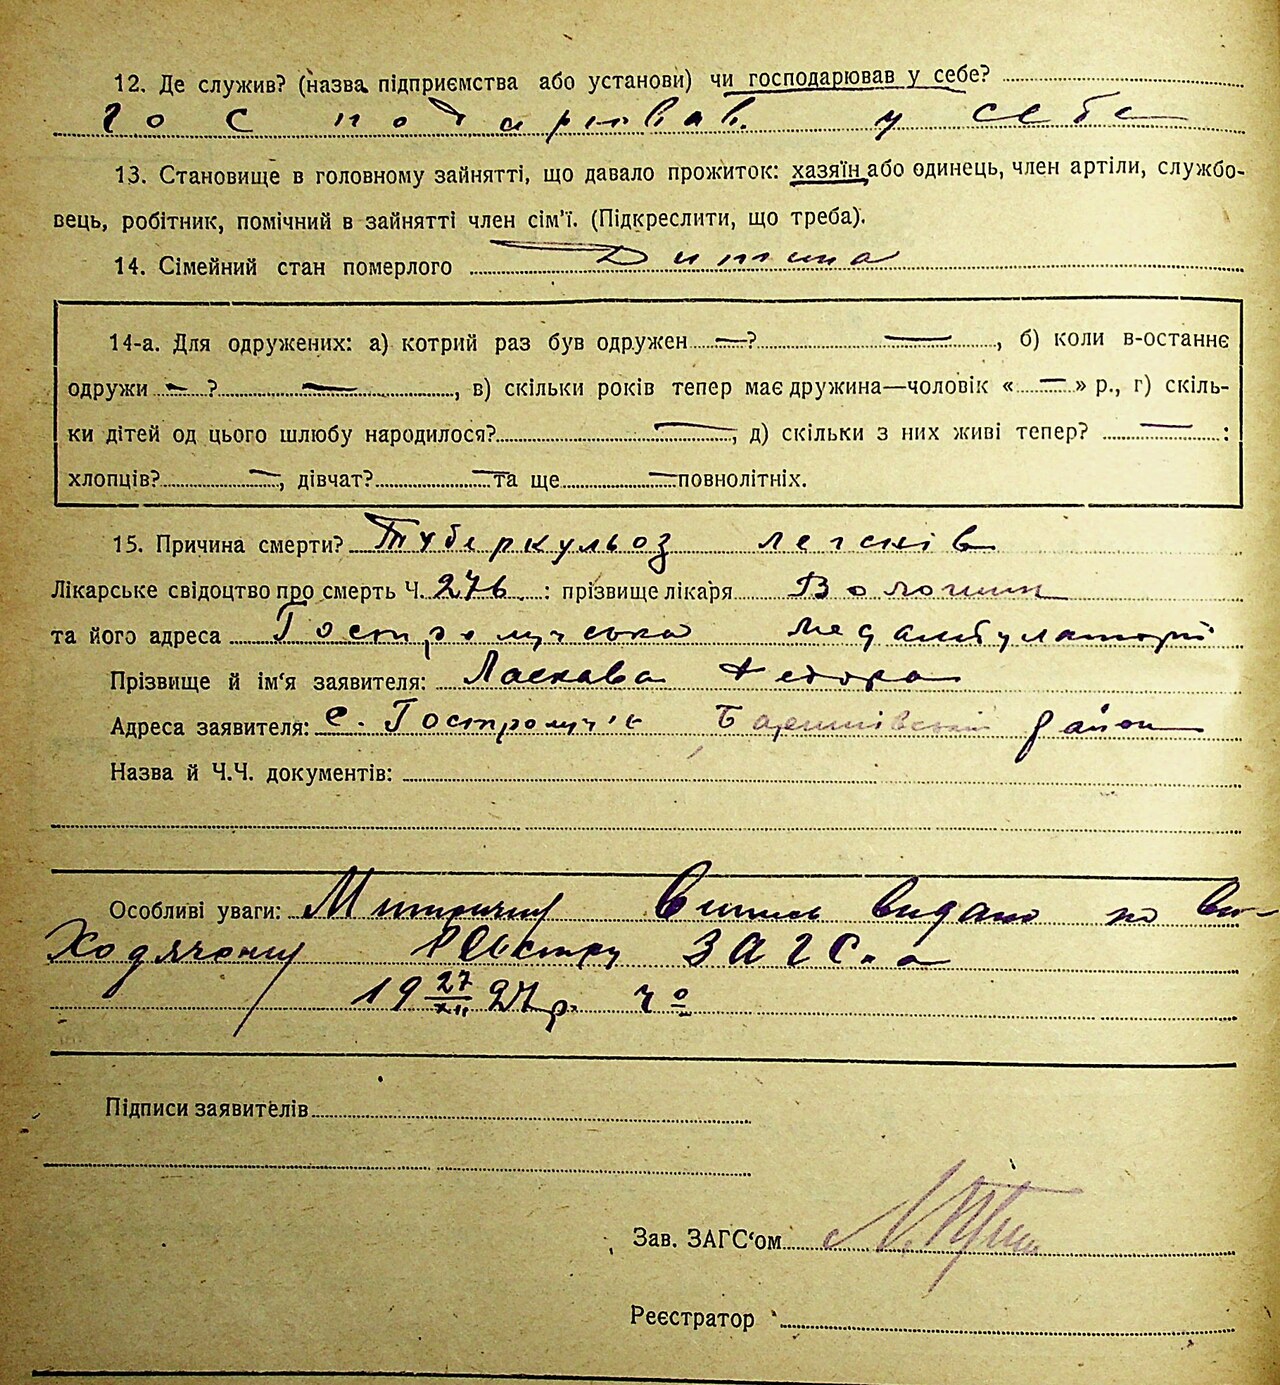 12. Де служив? (назва підприємства або установи) чи господарював у себе?
господарював у себе
13. Становище в головному зайнятті, що давало прожиток: хазяїн або одинець, член артіли, службо-
вець, робітник, помічний в зайнятті член сім'ї. (Підкреслити, що треба).
14. Сімейний стан померлого Дитина
14-а. Для одружених: а) котрий раз був одружен —? —, б) коли в-останнє
одружи —? —, в) скільки років тепер має дружина—чоловік «—» р., г) скіль-
ки дітей од цього шлюбу народилося? —, д) скільки з них живі тепер? —:
хлопців? —, дівчат? — та ще — повнолітніх.
15. Причина смерти? Туберкульоз легенів
Лікарське свідоцтво про смерть Ч. 276 : прізвище лікаря Волошин
та його адреса Гостролучська медамбулаторія
Прізвище й ім'я заявителя: Ласкава Федора
Адреса заявителя: с. Гостролуччє Баришівський район
Назва й Ч.Ч. документів:
Особливі уваги: Метричну Випись видано по ви-
ходячому реєстру ЗАГС.а
19 27/XII 27 р. ч⁰
Підписи заявителів
Зав. ЗАГС'ом
Реєстратор